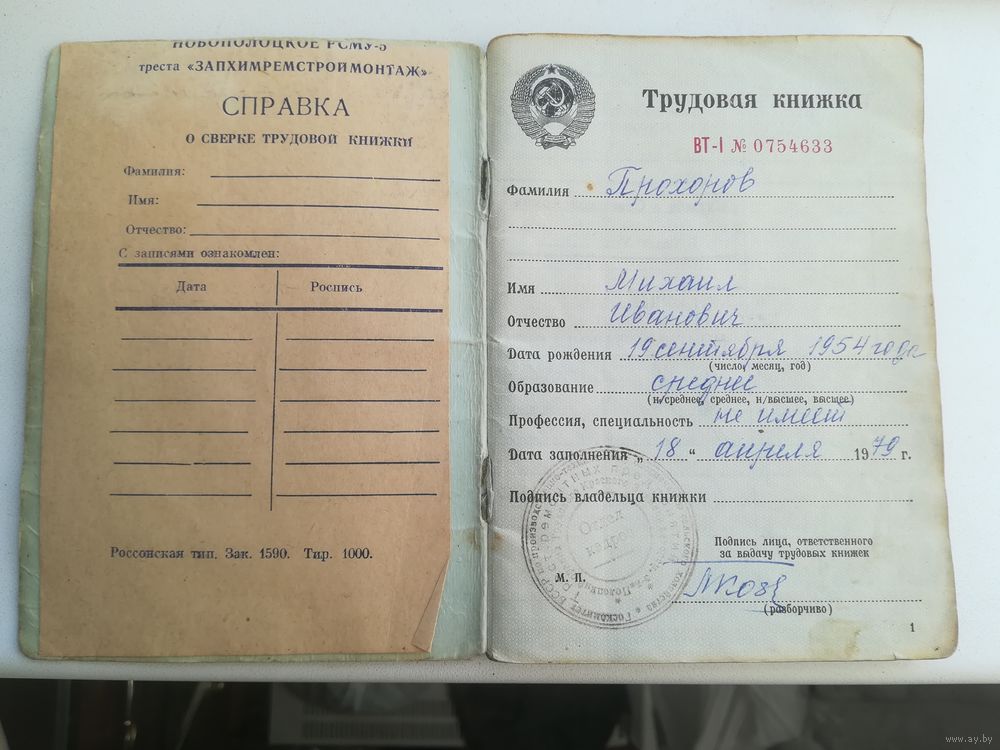 НОВОПОЛОЦКОЕ РСМУ-5
треста «ЗАПХИМРЕМСТРОЙМОНТАЖ»
СПРАВКА
О СВЕРКЕ ТРУДОВОЙ КНИЖКИ
Фамилия:
Имя:
Отчество:
С записями ознакомлен:
Дата Роспись
Россонская тип. Зак. 1590. Тир. 1000.
Трудовая книжка
ВТ-I № 0754633
Фамилия Прохоров
Имя Михаил
Отчество Иванович
Дата рождения 19 сентября 1954 года
(число, месяц, год)
Образование среднее
(н/среднее, среднее, н/высшее, высшее)
Профессия, специальность не имеет
Дата заполнения „18“ апреля 1979 г.
Подпись владельца книжки
Отдел
кадров
Подпись лица, ответственного
за выдачу трудовых книжек
М. П.
(разборчиво)
1
www.ay.by